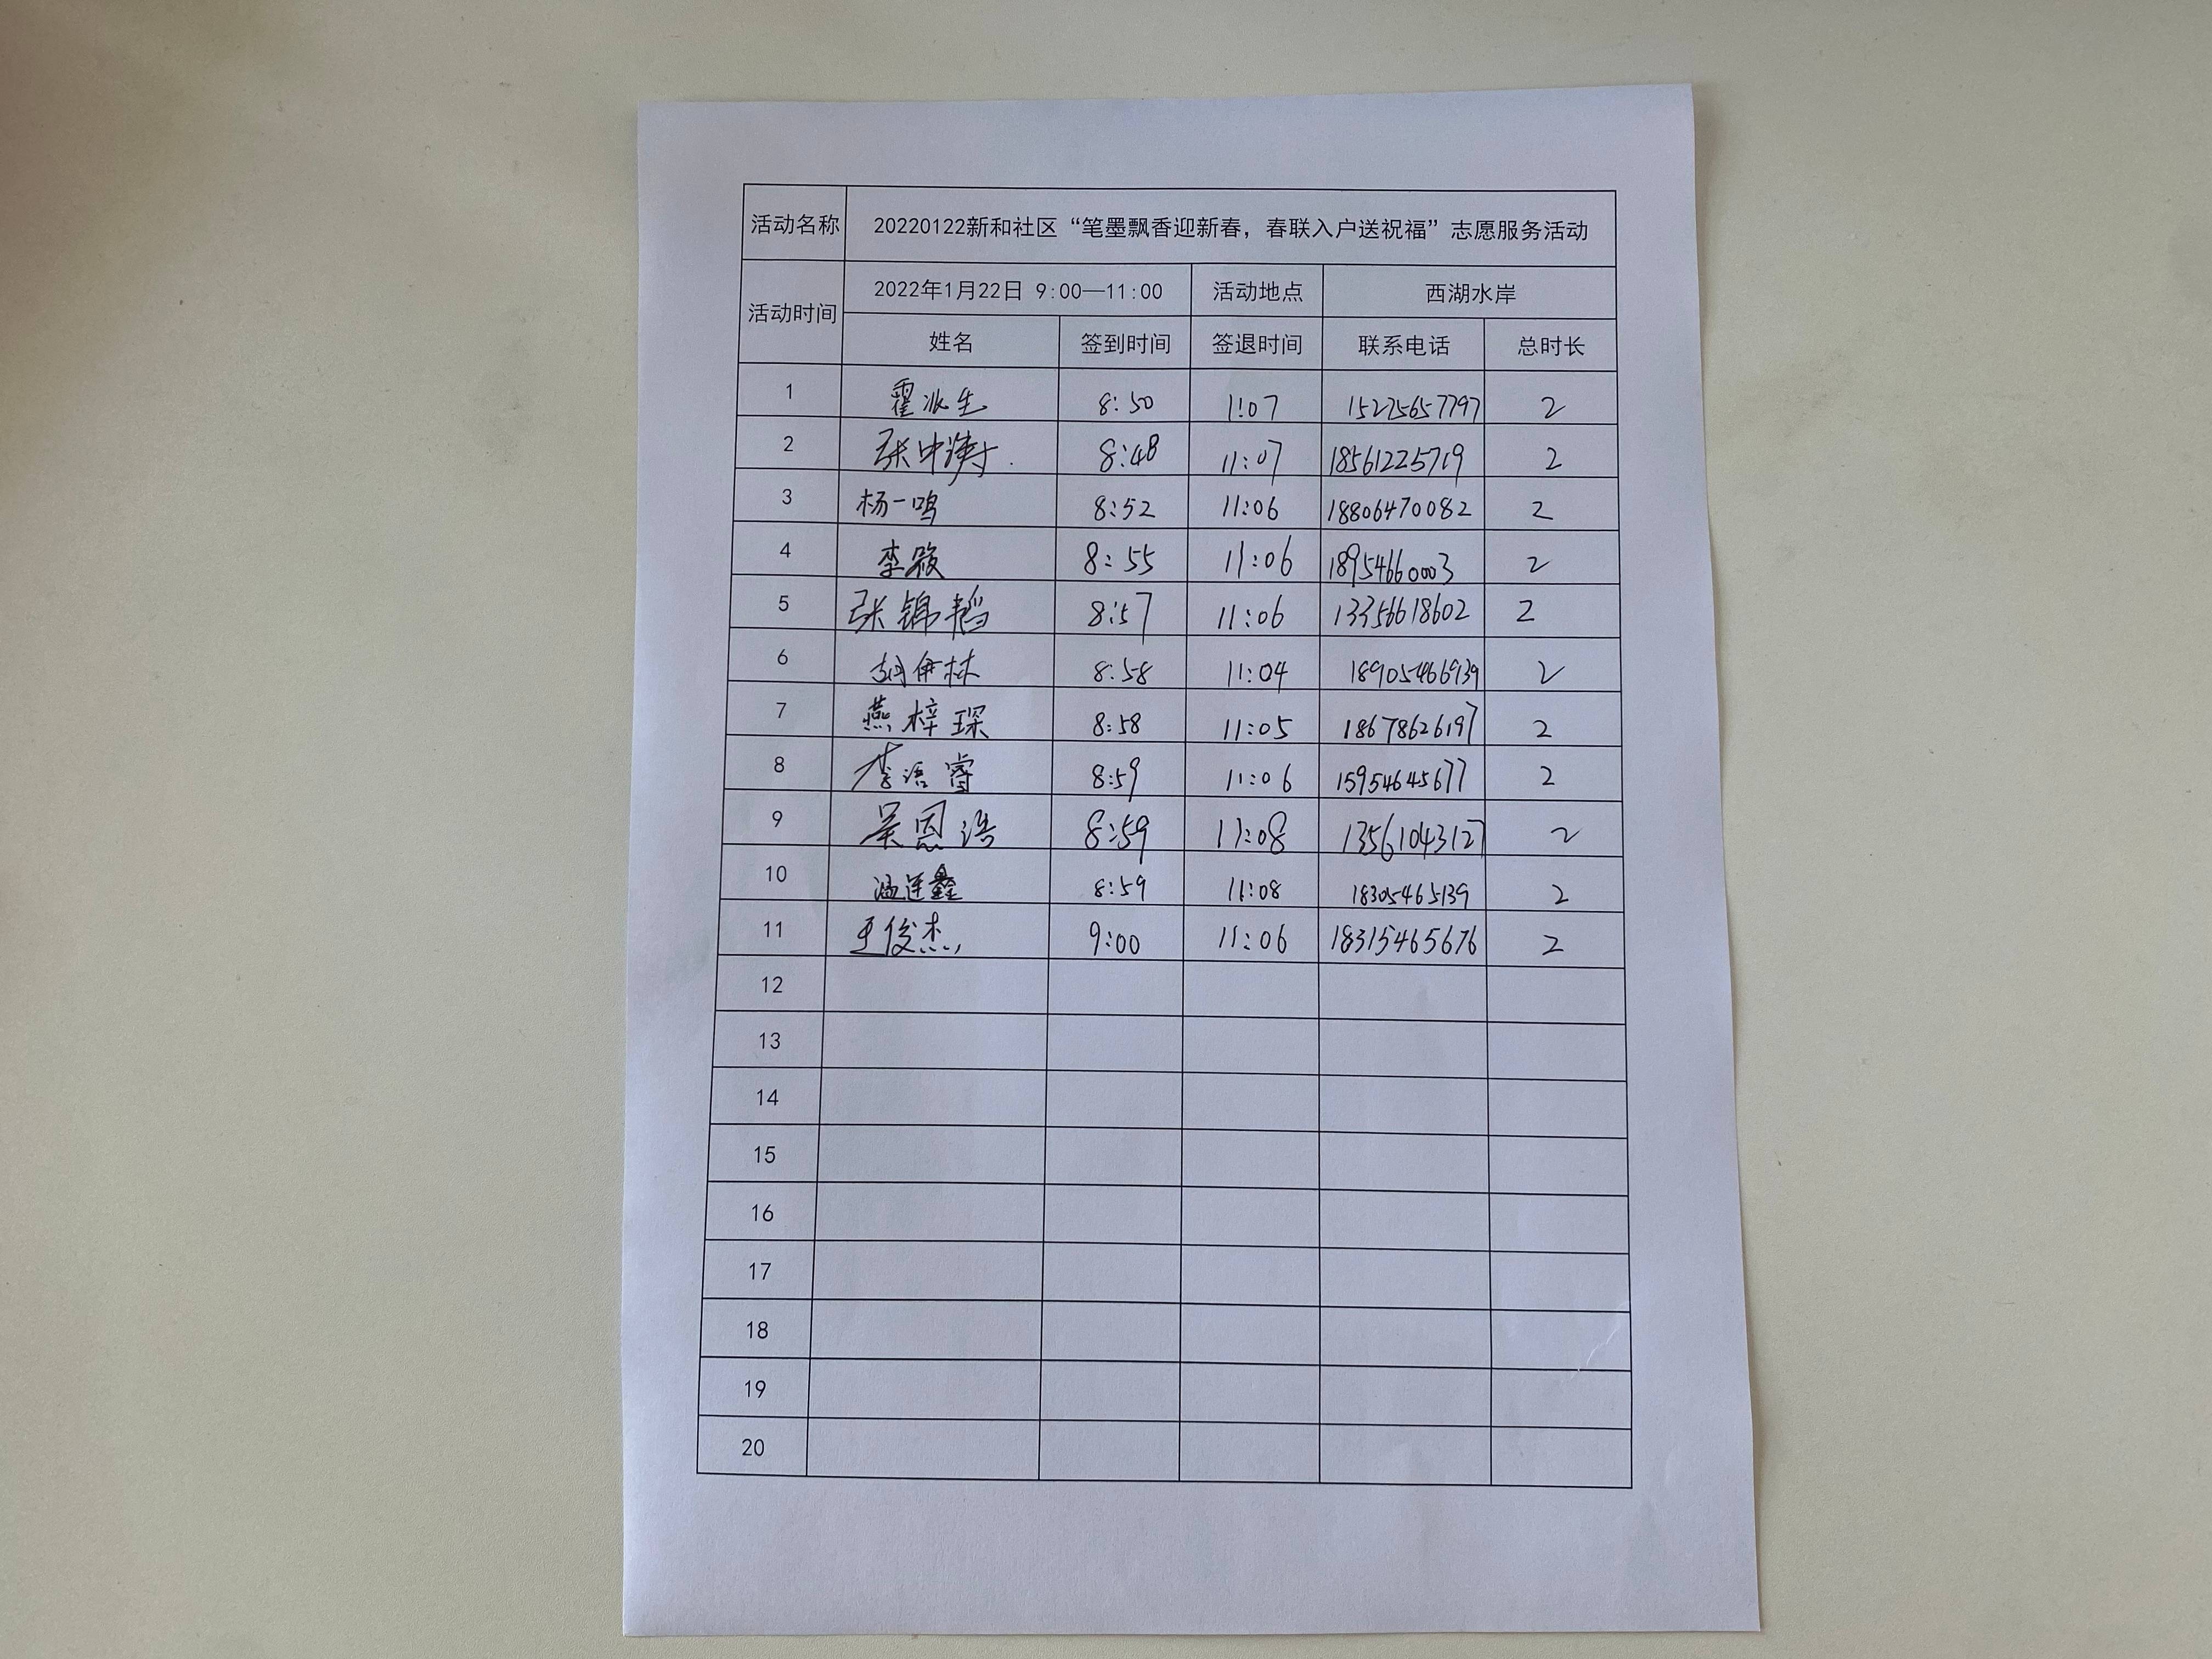 活动名称 20220122新和社区“笔墨飘香迎新春，春联入户送祝福”志愿服务活动
活动时间 2022年1月22日 9:00—11:00 活动地点 西湖水岸
姓名 签到时间 签退时间 联系电话 总时长
1 霍冰生 8:50 11:07 15275657797 2
2 张中涛 8:48 11:07 18561225719 2
3 杨一鸣 8:52 11:06 18806470082 2
4 李 8:55 11:06 18954660003 2
5 张锦韬 8:57 11:06 13356618602 2
6 胡伊林 8:58 11:04 18905466939 2
7 燕梓琛 8:58 11:05 18678626197 2
8 李浯睿 8:59 11:06 15954645677 2
9 吴恩浩 8:59 11:08 13561043127 2
10 温连鑫 8:59 11:08 18305465139 2
11 王俊杰 9:00 11:06 18315465676 2
12
13
14
15
16
17
18
19
20